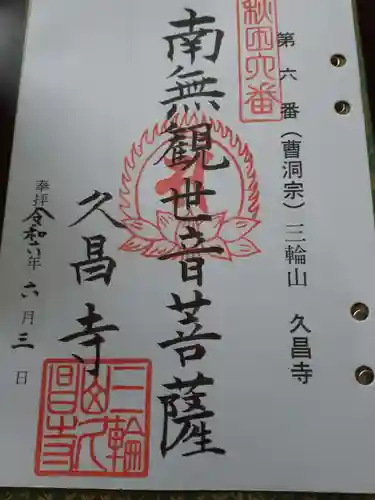 第六番(曹洞宗)三輪山 久昌寺
秩父六番
南無観世音菩薩
久昌寺
奉拝 令和六年 六月三日
三輪山久昌寺